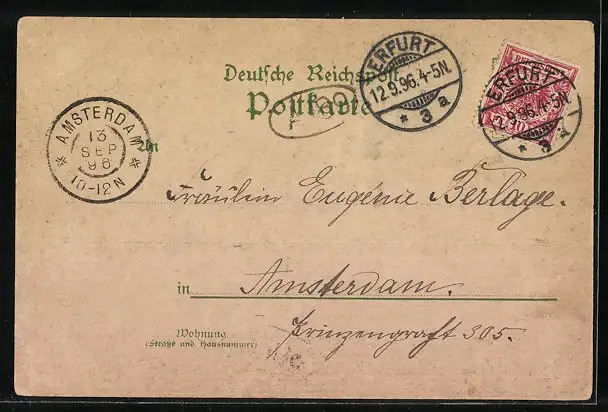 Deutsche Reichspost
Postkarte
ERFURT
12.9.96.4-5N.
* 3 a
ERFURT
9.96.4-5N.
* 3
10
AMSTERDAM
13
SEP
96
10-12N
An
Fräulein Eugénie Berlage.
in Amsterdam.
Wohnung
(Straße und Hausnummer)
Prinzengracht 305.